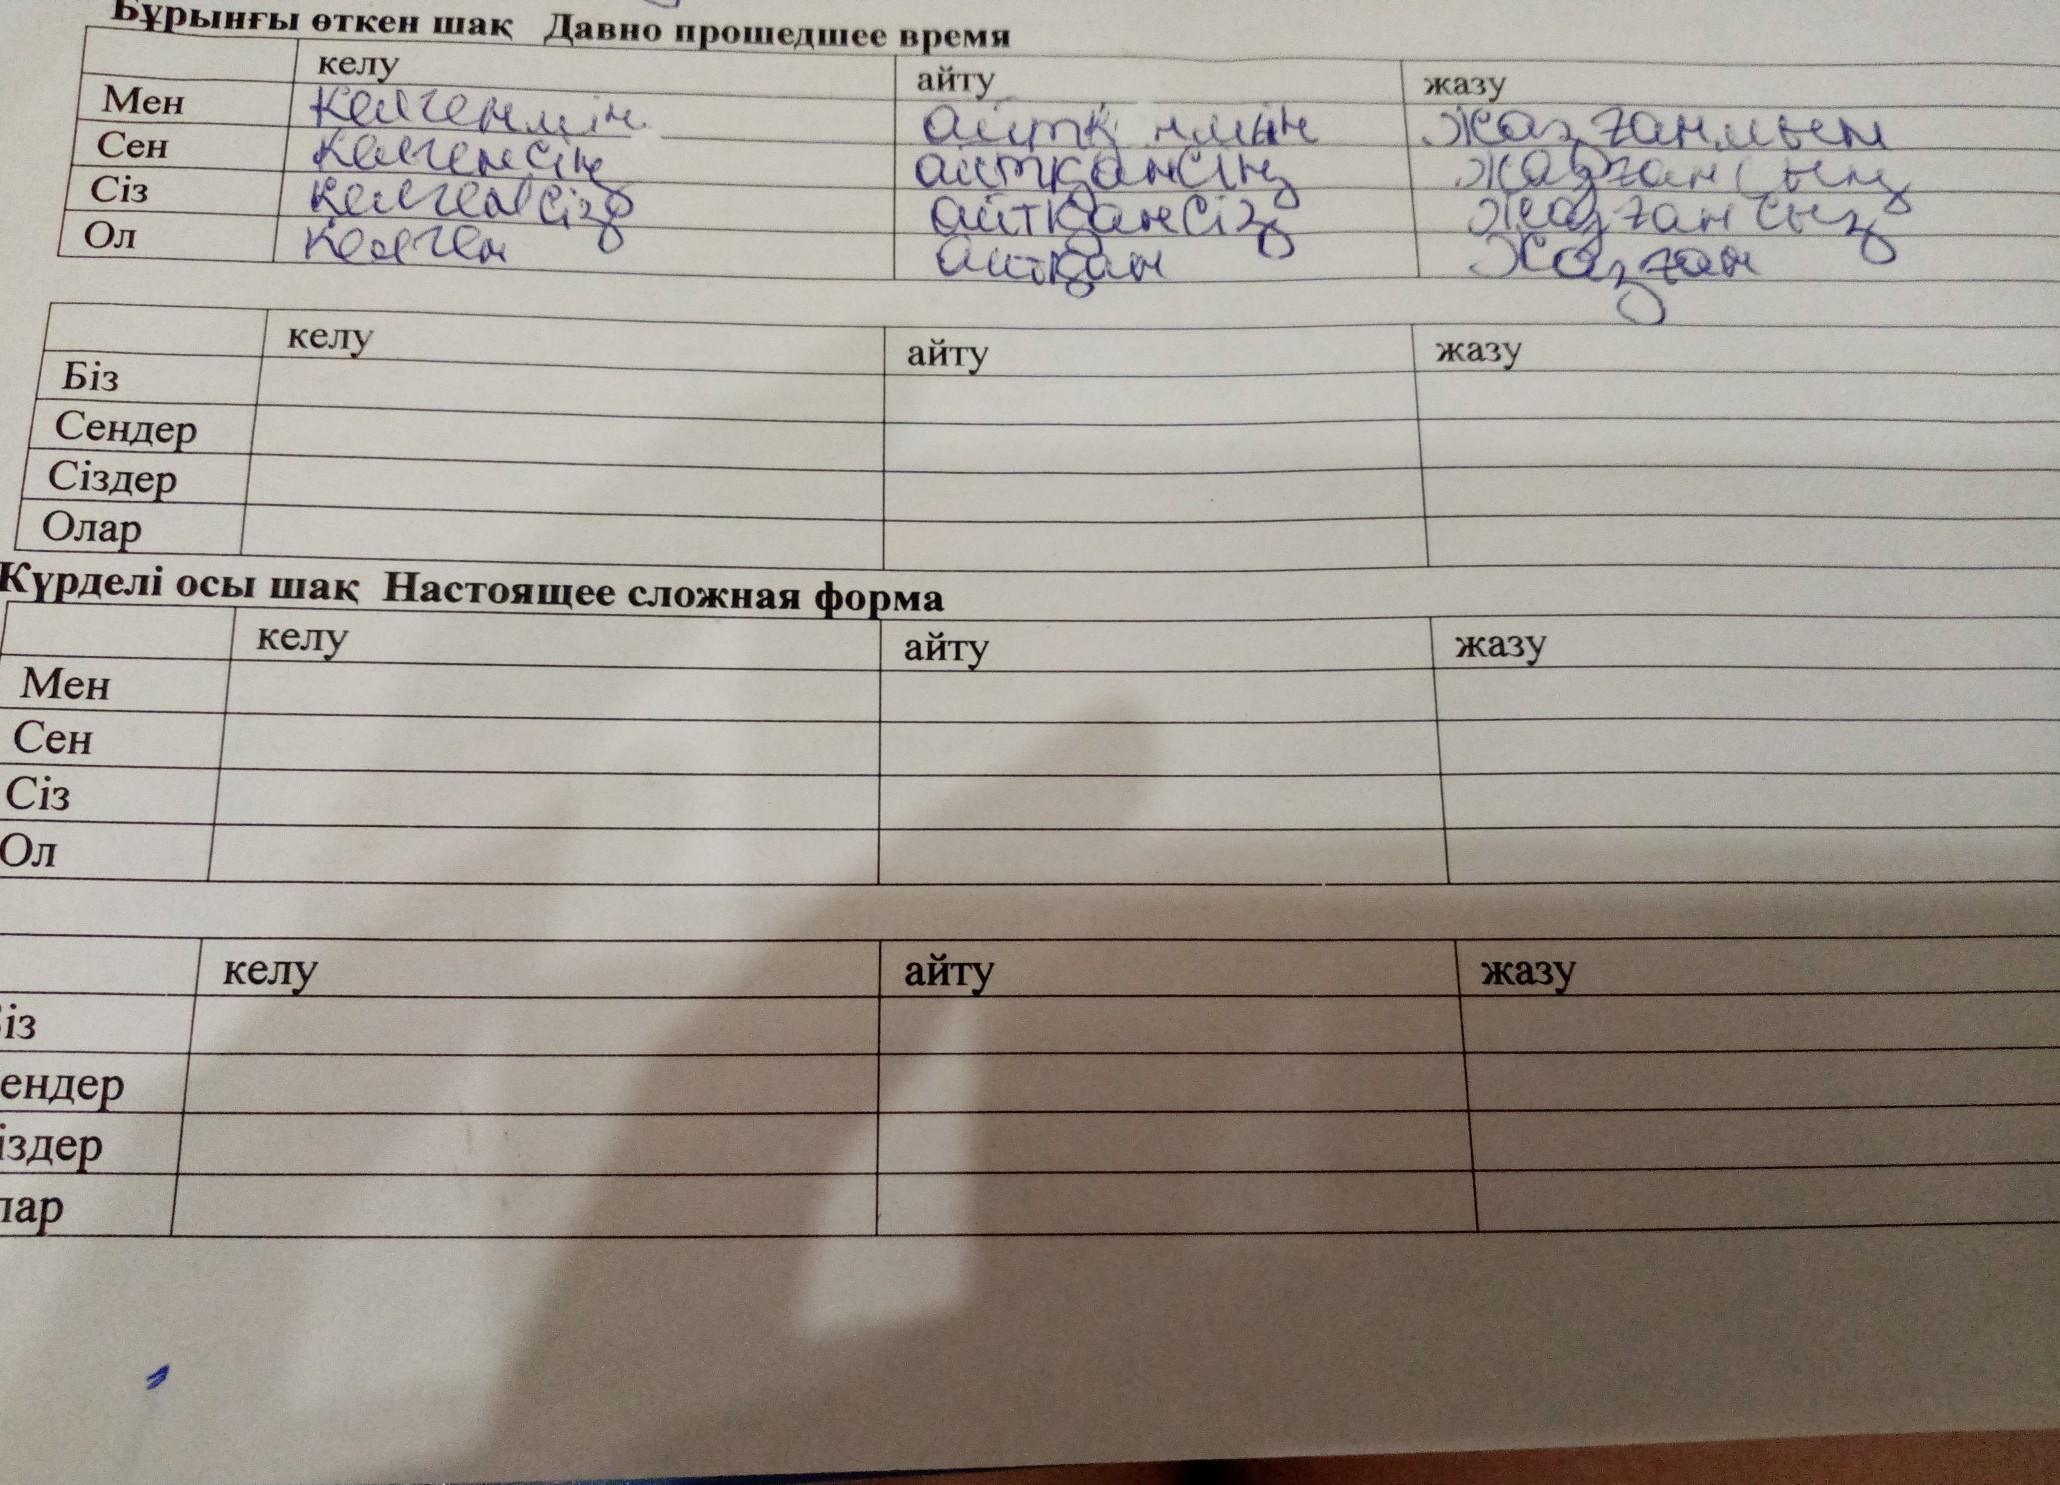 Бұрынғы өткен шақ Давно прошедшее время
келу айту жазу
Мен келгенмін айтқ нмын жазғанмын
Сен келгенсің айтқансің жазғансың
Сіз келгенсіз айтқансіз жазғансыз
Ол келген айтқан жазған
келу айту жазу
Біз
Сендер
Сіздер
Олар
Күрделі осы шақ Настоящее сложная форма
келу айту жазу
Мен
Сен
Сіз
Ол
келу айту жазу
із
ендер
іздер
лар